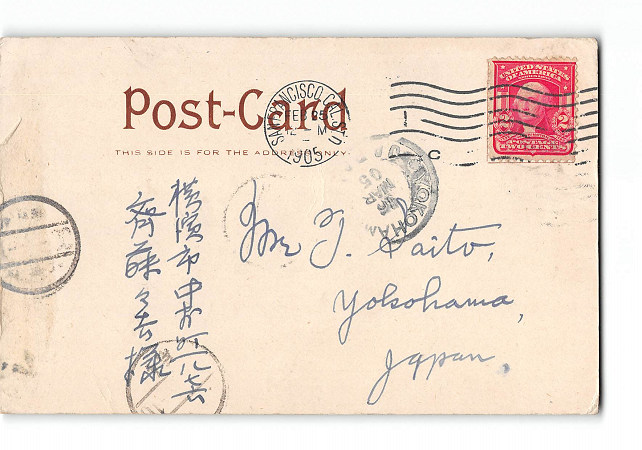 Post-Card
THIS SIDE IS FOR THE ADDRESS ONLY.
SAN FRANCISCO, CAL. ST'N
FEB
12 - M
1905
C
UNITED STATES
OF AMERICA
2 2
POSTAGE
TWO CENTS
YOKOHAMA
05
Mr J. Saito,
Yokohama,
Japan.
横濱市
齊藤
様